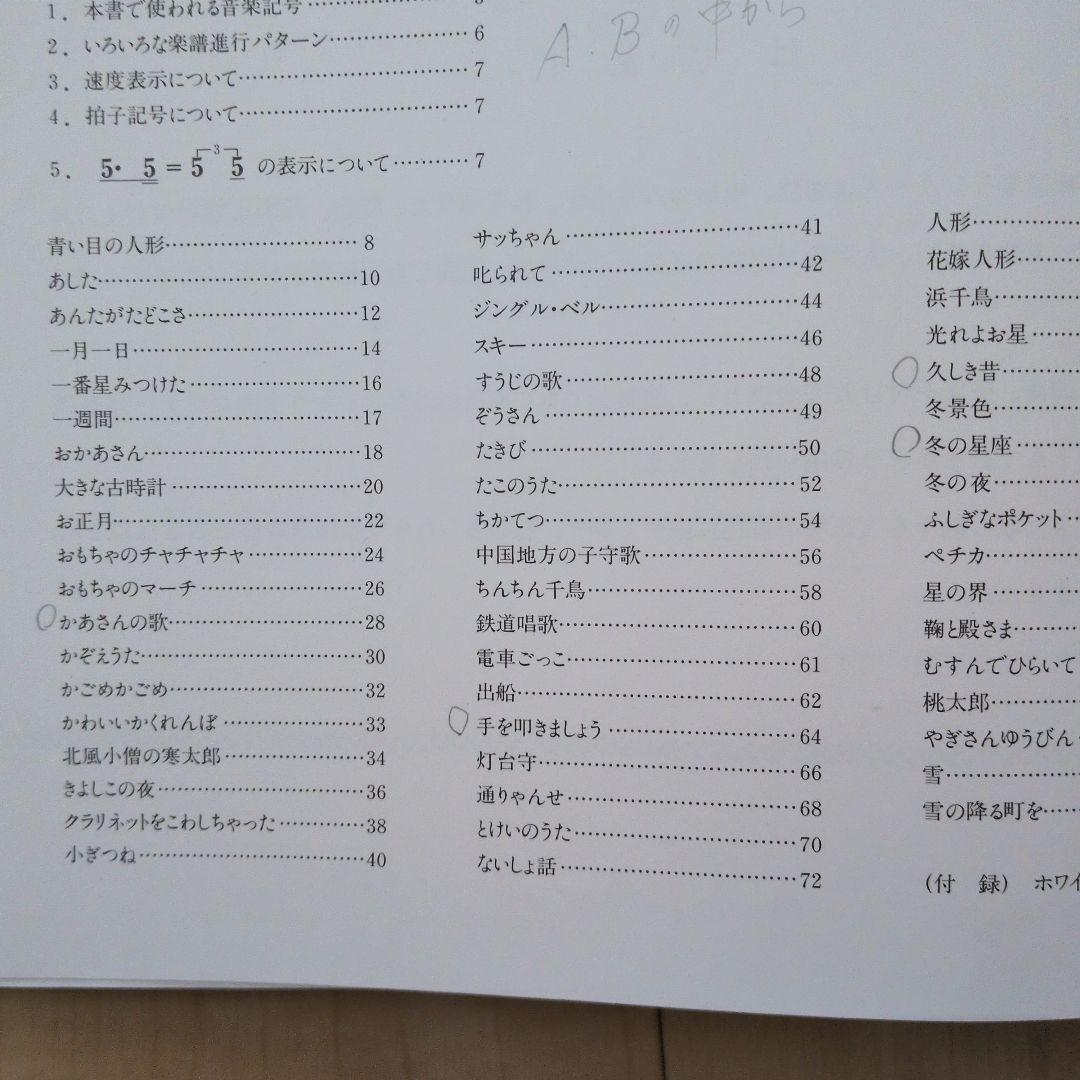 1．本書で使われる音楽記号
2．いろいろな楽譜進行パターン 6
3．速度表示について 7
4．拍子記号について 7
5．5・ 5＝5 3 5 の表示について 7
A.Bの中から
青い目の人形 8
あした 10
あんたがたどこさ 12
一月一日 14
一番星みつけた 16
一週間 17
おかあさん 18
大きな古時計 20
お正月 22
おもちゃのチャチャチャ 24
おもちゃのマーチ 26
かあさんの歌 28
かぞえうた 30
かごめかごめ 32
かわいいかくれんぼ 33
北風小僧の寒太郎 34
きよしこの夜 36
クラリネットをこわしちゃった 38
小ぎつね 40
サッちゃん 41
叱られて 42
ジングル・ベル 44
スキー 46
すうじの歌 48
ぞうさん 49
たきび 50
たこのうた 52
ちかてつ 54
中国地方の子守歌 56
ちんちん千鳥 58
鉄道唱歌 60
電車ごっこ 61
出船 62
手を叩きましょう 64
灯台守 66
通りゃんせ 68
とけいのうた 70
ないしょ話 72
人形
花嫁人形
浜千鳥
光れよお星
久しき昔
冬景色
冬の星座
冬の夜
ふしぎなポケット
ペチカ
星の界
鞠と殿さま
むすんでひらいて
桃太郎
やぎさんゆうびん
雪
雪の降る町を
(付 録) ホワイ